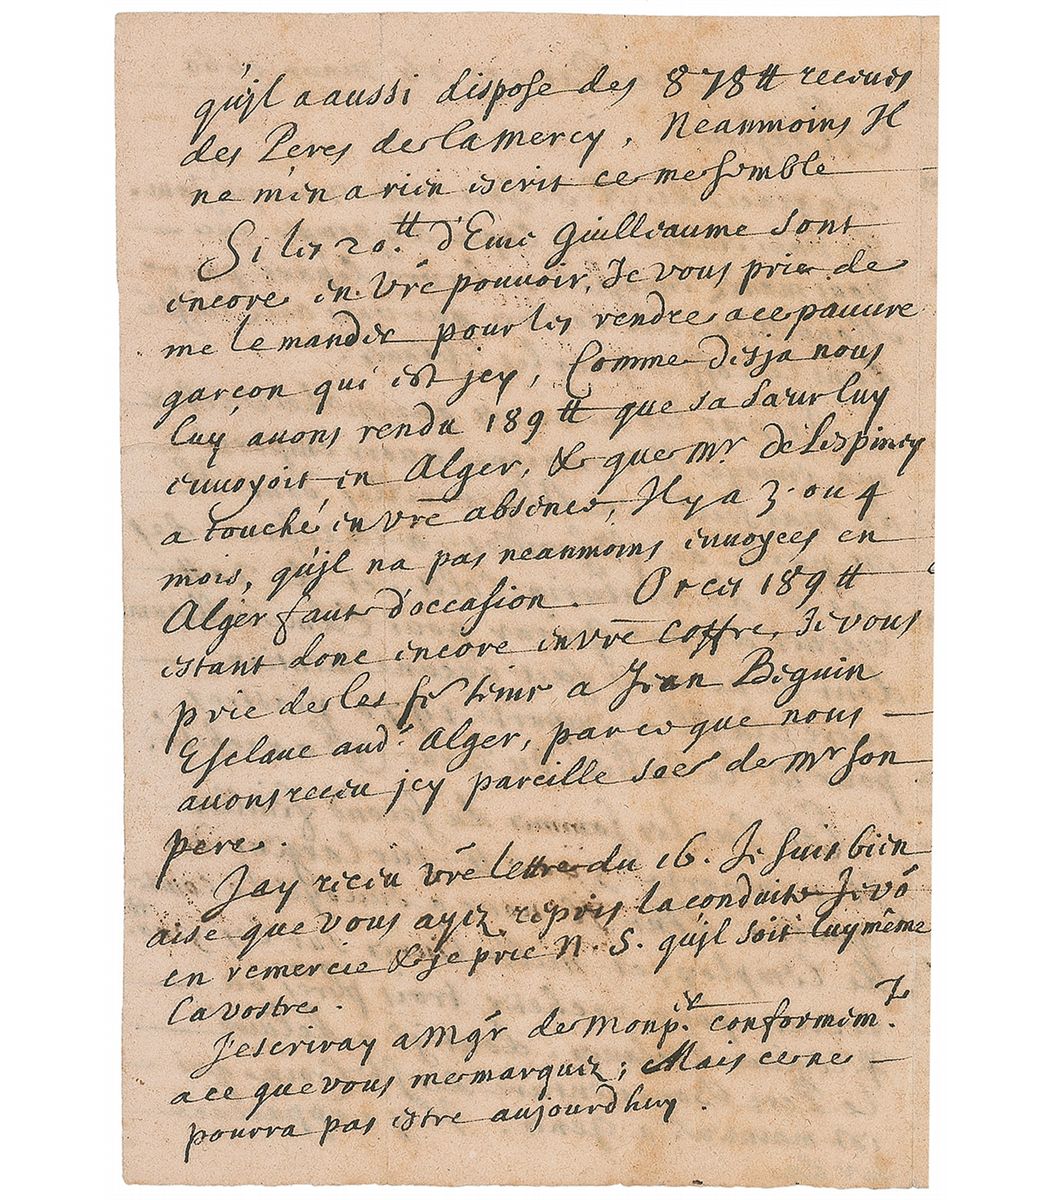 qu'jl a aussi dispose des 878 ₶ receues
des Peres de la mercy, Neanmoins Il
ne m'en a rien escrit ce me semble
Si les 20.₶ d'Emé Guilleaume sont
encore en vr̃e pouvoir, Je vous prie de
me le mander pour les rendre a ce pauure
garçon qui est jcy, Comme desja nous
luy auons rendu 189 ₶ que sa sœur luy
enuoyoit en Alger, & que Mr. de Lespiney
a touché en vr̃e absence, Il y a 3. ou 4
mois, qu'jl na pas neanmoins enuoyees en
Alger faute d'occasion. Or ces 189 ₶
estant donc encore en vr̃e coffre, Je vous
prie de les fe tenir a Jean Beguin
Esclaue aud. Alger, parce que nous
auons receu jcy pareille soẽ de Mr son
pere.
Jay receu vr̃e lettre du 16. Je suis bien
aise que vous ayez repris la conduite Je võ
en remercie & je prie N. S. qu'jl soit luy même
la vostre.
J'escriray a Mgr̃ de Monp.er conformem.t
a ce que vous me marquez; Mais ce ne
pourra pas estre aujourdhuy.